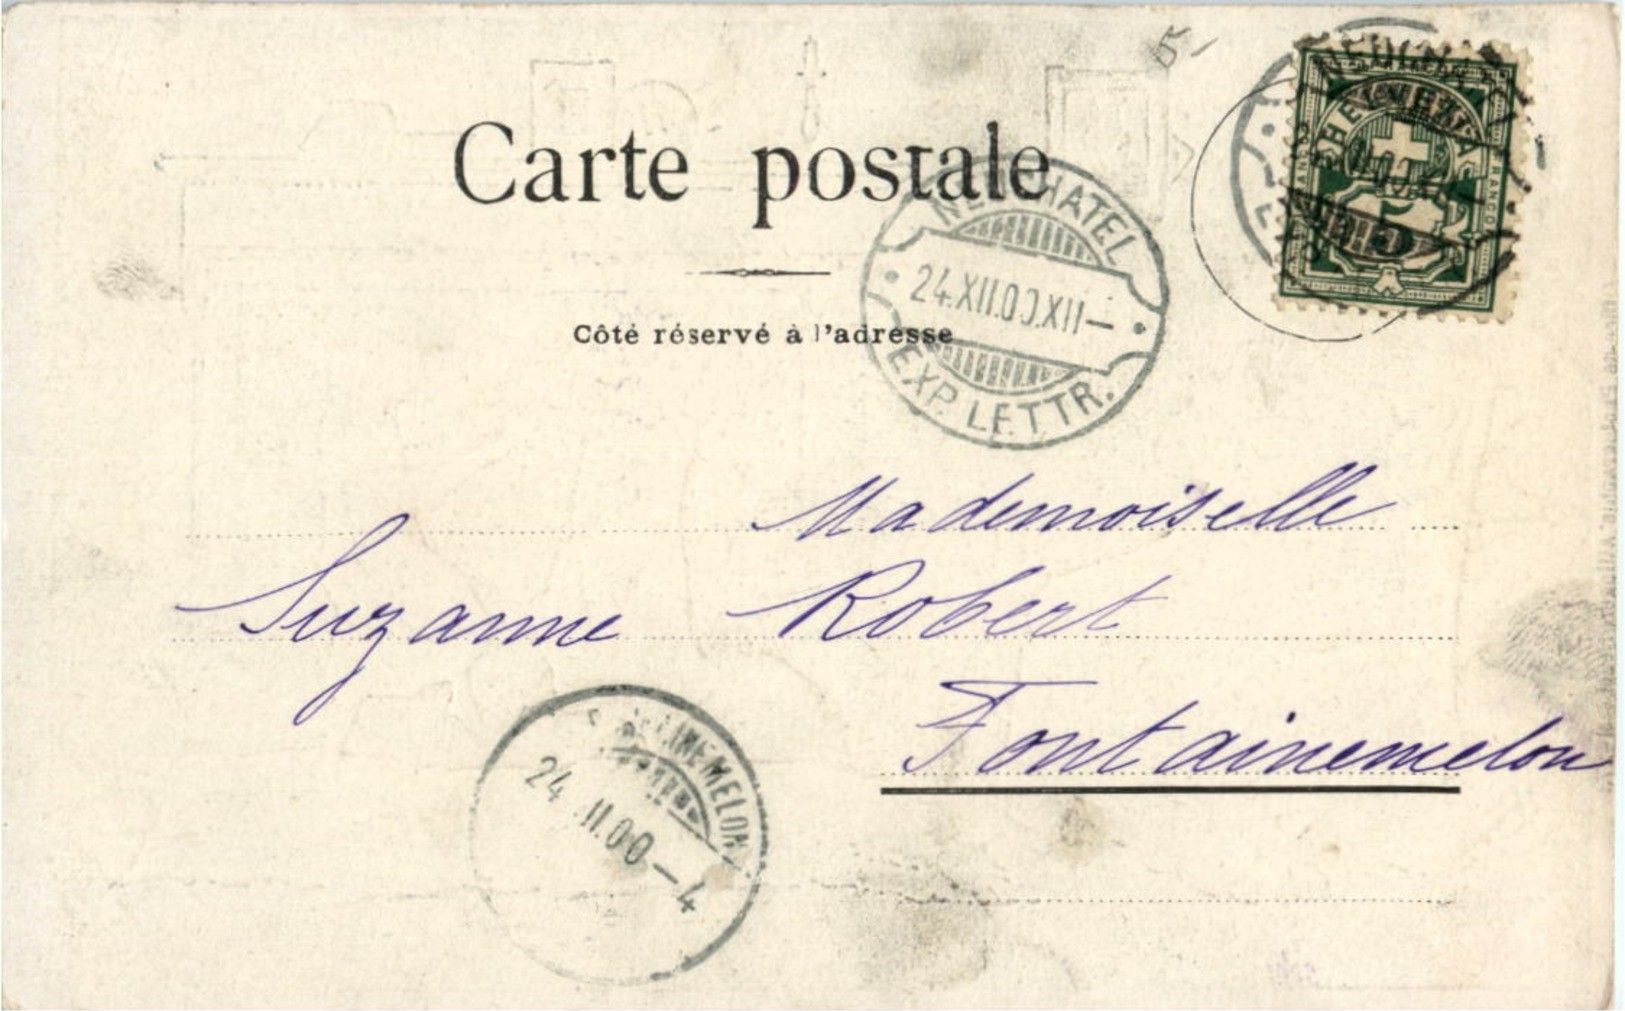 5-
HELVETIA
FRANCO
5
Carte postale
NEUCHATEL
24.XII.00.XII-
EXP. LETTR.
Côté réservé à l'adresse
Mademoiselle
Suzanne Robert
Fontainemelon
24 .II.00-4